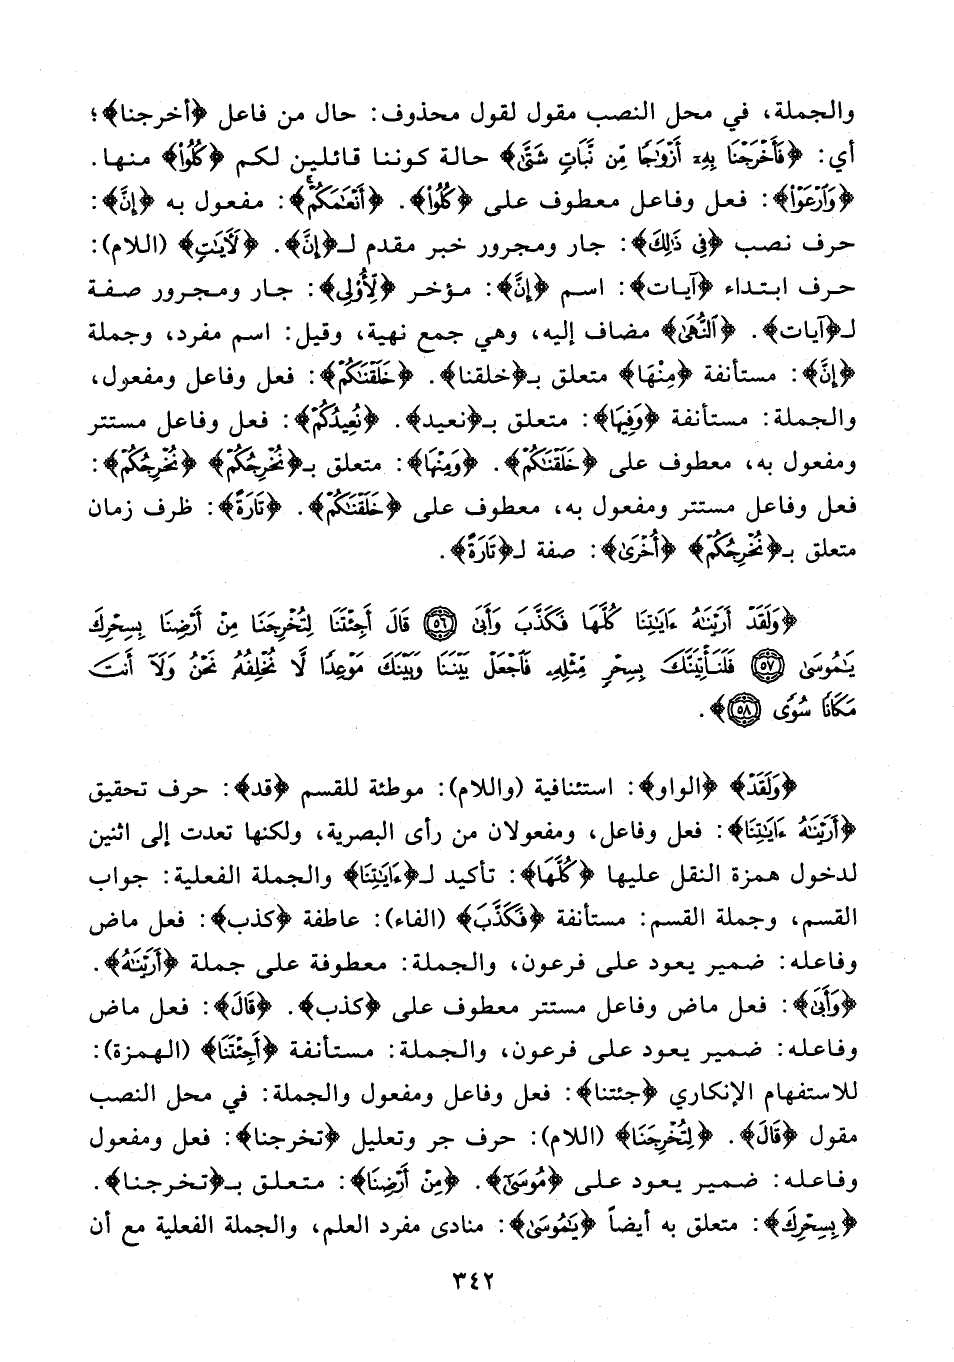 والجملة، في محل النصب مقول لقول محذوف: حال من فاعل ﴿أخرجنا﴾؛
أي: ﴿فَأَخْرَجْنَا بِهِۦٓ أَزْوَٰجًا مِّن نَّبَاتٍ شَتَّىٰ﴾ حالة كوننا قائلين لكم ﴿كُلُوا۟﴾ منها.
﴿وَٱرْعَوْا۟﴾: فعل وفاعل معطوف على ﴿كُلُوا۟﴾. ﴿أَنْعَٰمَكُمْ ۗ﴾: مفعول به ﴿إِنَّ﴾:
حرف نصب ﴿فِى ذَٰلِكَ﴾: جار ومجرور خبر مقدم لـ﴿إِنَّ﴾. ﴿لَءَايَٰتٍ﴾ (اللام):
حرف ابتداء ﴿آيات﴾: اسم ﴿إِنَّ﴾: مؤخر ﴿لِّأُو۟لِى﴾: جار ومجرور صفة
لـ﴿آيات﴾. ﴿ٱلنُّهَىٰ﴾ مضاف إليه، وهي جمع نهية، وقيل: اسم مفرد، وجملة
﴿إِنَّ﴾: مستأنفة ﴿مِنْهَا﴾ متعلق بـ﴿خلقنا﴾. ﴿خَلَقْنَٰكُمْ﴾: فعل وفاعل ومفعول،
والجملة: مستأنفة ﴿وَفِيهَا﴾: متعلق بـ﴿نعيد﴾. ﴿نُعِيدُكُمْ﴾: فعل وفاعل مستتر
ومفعول به، معطوف على ﴿خَلَقْنَٰكُمْ﴾. ﴿وَمِنْهَا﴾: متعلق بـ﴿نُخْرِجُكُمْ﴾ ﴿نُخْرِجُكُمْ﴾:
فعل وفاعل مستتر ومفعول به، معطوف على ﴿خَلَقْنَٰكُمْ﴾. ﴿تَارَةً﴾: ظرف زمان
متعلق بـ﴿نُخْرِجُكُمْ﴾ ﴿أُخْرَىٰ﴾: صفة لـ﴿تَارَةً﴾.
﴿وَلَقَدْ أَرَيْنَٰهُ ءَايَٰتِنَا كُلَّهَا فَكَذَّبَ وَأَبَىٰ ﴿٥٦﴾ قَالَ أَجِئْتَنَا لِتُخْرِجَنَا مِنْ أَرْضِنَا بِسِحْرِكَ
يَٰمُوسَىٰ ﴿٥٧﴾ فَلَنَأْتِيَنَّكَ بِسِحْرٍ مِّثْلِهِۦ فَٱجْعَلْ بَيْنَنَا وَبَيْنَكَ مَوْعِدًا لَّا نُخْلِفُهُۥ نَحْنُ وَلَآ أَنتَ
مَكَانًا سُوًى ﴿٥٨﴾﴾.
﴿وَلَقَدْ﴾ ﴿الواو﴾: استئنافية (واللام): موطئة للقسم ﴿قد﴾: حرف تحقيق
﴿أَرَيْنَٰهُ ءَايَٰتِنَا﴾: فعل وفاعل، ومفعولان من رأى البصرية، ولكنها تعدت إلى اثنين
لدخول همزة النقل عليها ﴿كُلَّهَا﴾: تأكيد لـ﴿ءَايَٰتِنَا﴾ والجملة الفعلية: جواب
القسم، وجملة القسم: مستأنفة ﴿فَكَذَّبَ﴾ (الفاء): عاطفة ﴿كذب﴾: فعل ماض
وفاعله: ضمير يعود على فرعون، والجملة: معطوفة على جملة ﴿أَرَيْنَٰهُ﴾.
﴿وَأَبَىٰ﴾: فعل ماض وفاعل مستتر معطوف على ﴿كذب﴾. ﴿قَالَ﴾: فعل ماض
وفاعله: ضمير يعود على فرعون، والجملة: مستأنفة ﴿أَجِئْتَنَا﴾ (الهمزة):
للاستفهام الإنكاري ﴿جئتنا﴾: فعل وفاعل ومفعول والجملة: في محل النصب
مقول ﴿قَالَ﴾. ﴿لِتُخْرِجَنَا﴾ (اللام): حرف جر وتعليل ﴿تخرجنا﴾: فعل ومفعول
وفاعله: ضمير يعود على ﴿مُوسَىٰٓ﴾. ﴿مِنْ أَرْضِنَا﴾: متعلق بـ﴿تخرجنا﴾.
﴿بِسِحْرِكَ﴾: متعلق به أيضاً ﴿يَٰمُوسَىٰ﴾: منادى مفرد العلم، والجملة الفعلية مع أن
٣٤٢